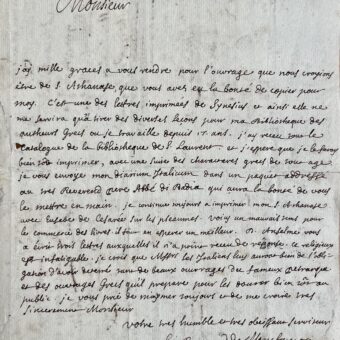 Monsieur
j'ay mille graces a vous rendre pour l'ouvrage que nous croyions
être de S Athanase que vous avez eu la bonté de copier pour
moy. C'est une des lettres imprimées de Synesius et ainsi elle ne
me servira qu'à tirer des diverses leçons pour ma Bibliotheque des
autheurs Grecs ou je travaille depuis ans. j'ay receu tout le
Catalogue de la bibliotheque de S Laurent et j'espere que je le feray
bien tôt imprimer, avec une suite des characteres grecs de tout age
je vous envoye mon diarium Italicum dans un paquet addressé
au tres Reverend pere Abbé di Badia qui aura la bonté de vous
le mettre en main. je continue toujours a imprimer mon S Athanase
avec Eusebe de Cesarée sur les pseaumes. voicy un mauvais tems pour
le commerce des livres il faut en esperer un meilleur. D. Anselme vous
a écrit trois lettres auxquelles il n'a point receu de réponse. ce religieux
est infatigable. je crois que Messrs les Italiens luy auront bien de l'obli-
gation d'avoir deterré tant de beaux ouvrages du fameux petrarque
et des ouvrages Grecs qu'il prepare pour les donner bien tôt au
public. je vous prie de m'aymer toujours et de me croire tres
sincerement Monsieur
votre tres humble et tres obeissant serviteur